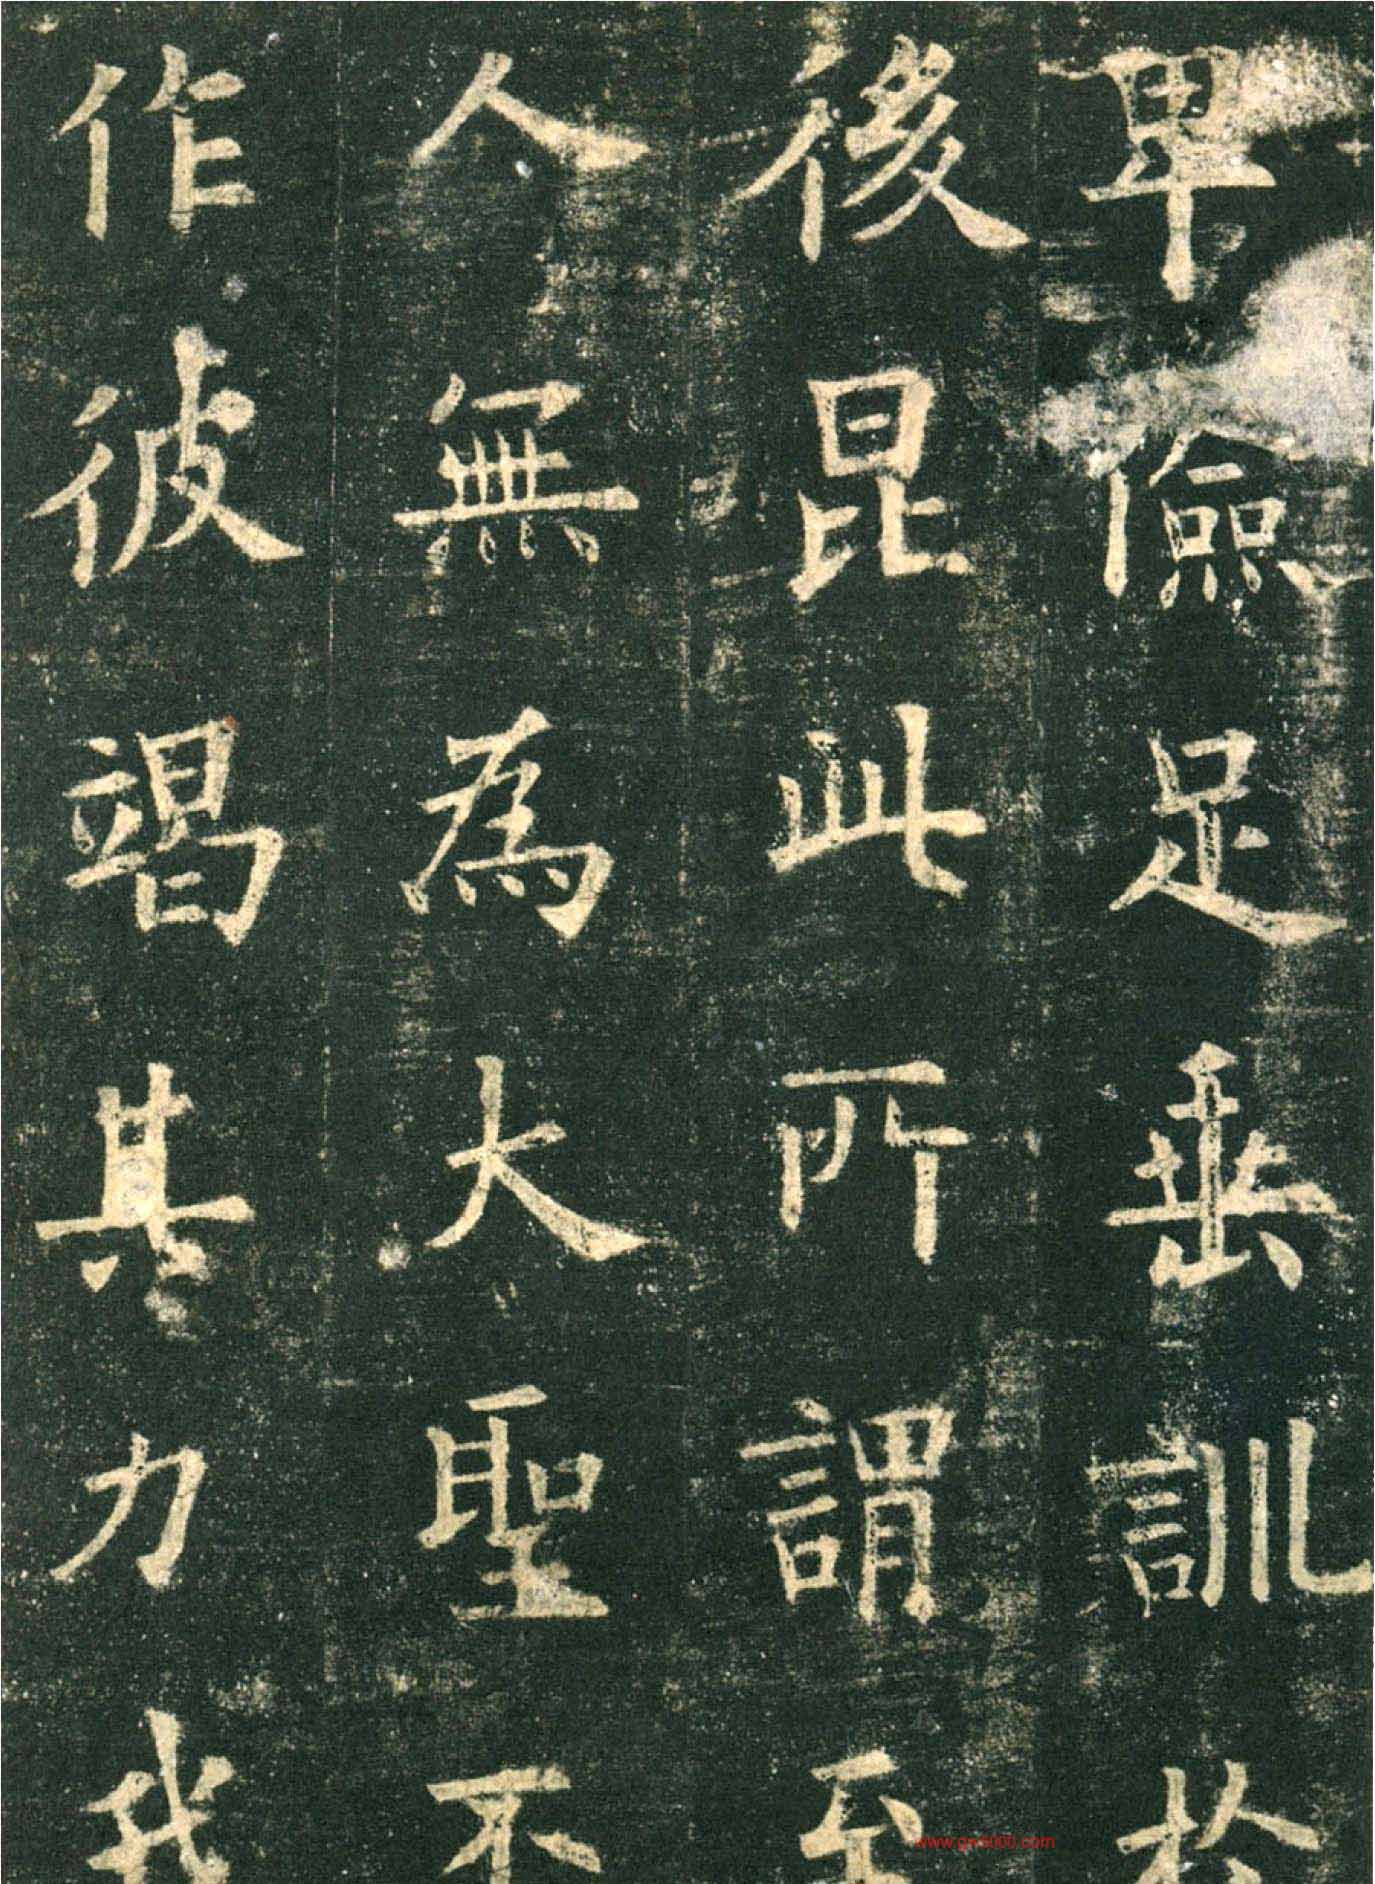 卑儉足垂訓於
後昆此所謂至
人無為大聖不
作彼竭其力我
www.gw5000.com